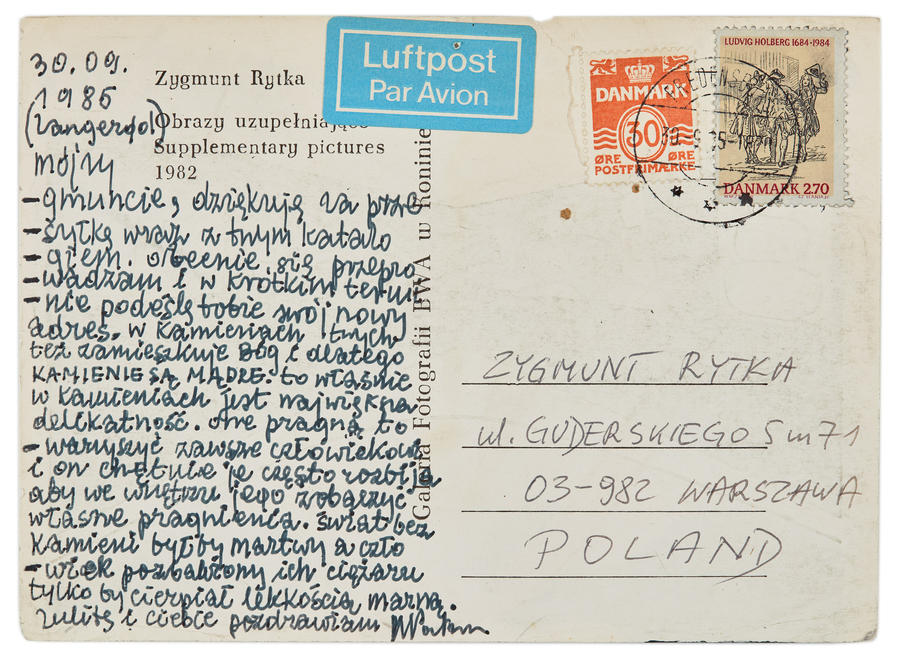 30.09.
1985
mójzy
-gmuncie, dziękuję za prze
-syłkę wraz z tnym katalo
-giem. obecnie się przepro
-wadzam i w krótkim termi
-nie podeślę tobie swój nowy
adres. w kamieniach tnych
też zamieszkuje Bóg i dlatego
KAMIENIE SĄ MĄDRE. to właśnie
w kamieniach jest największa
delikatność. one pragną to
-warzyszyć zawsze człowiekowi
i on chętnie je często rozbija
aby we wnętrzu jego zobaczyć
własne pragnienia. świat bez
kamieni byłby martwy a czło
-wiek pozbawiony ich ciężaru
tylko by cierpiał lekkością marną.
i ciebie pozdrawiam
Zygmunt Rytka
Obrazy uzupełniające
Supplementary pictures
1982
Galeria Fotografii BWA w Koninie
Luftpost
Par Avion
DANMARK
30
ØRE ØRE
POSTFRIMÆRKE
LUDVIG HOLBERG 1684-1984
DANMARK 2.70
ZYGMUNT RYTKA
ul. GUDERSKIEGO 5 m 71
03-982 WARSZAWA
POLAND